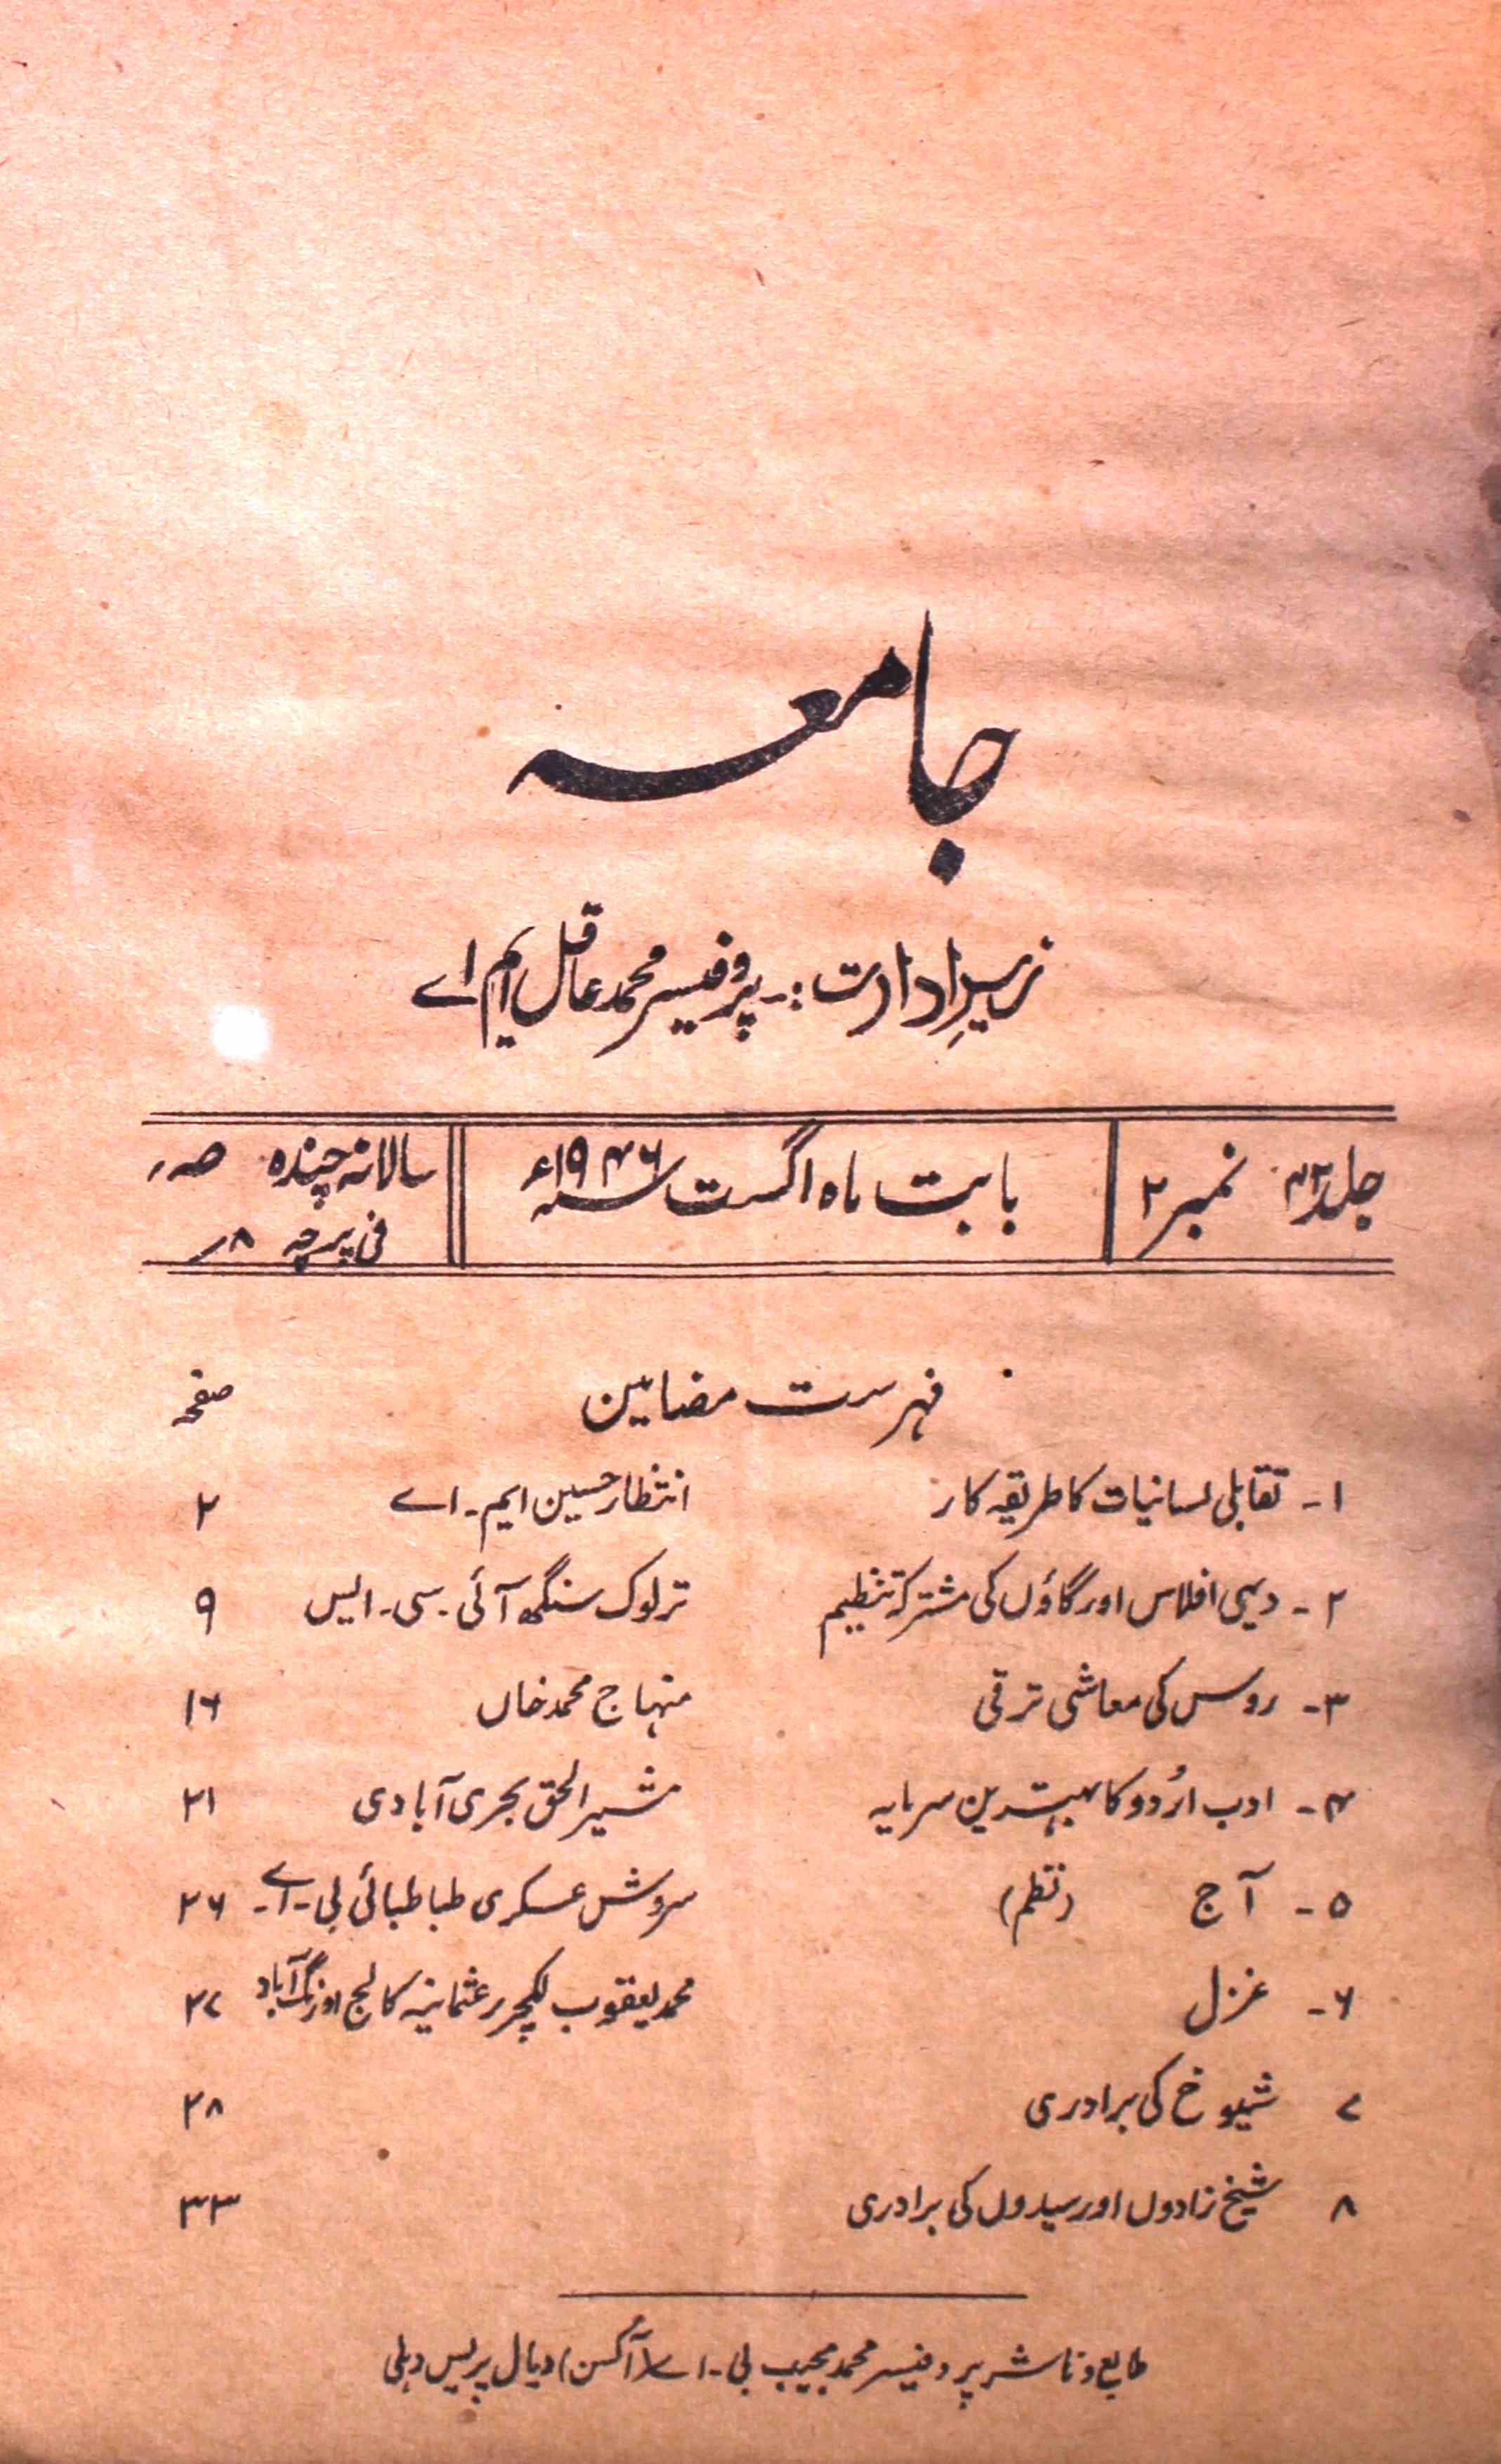 جامعہ
زیرِ ادارت :۔ پروفیسر محمد عاقل ایم اے
جلد ۴۳ نمبر ۲
بابت ماہ اگست ۱۹۴۶ء
سالانہ چندہ صہ
فی پرچہ ۸؍
فہرست مضامین صفحہ
۱۔ تقابلی لسانیات کا طریقہ کار انتظار حسین ایم۔ اے ۲
۲۔ دیہی افلاس اور گاؤں کی مشترکہ تنظیم ترلوک سنگھ آئی۔ سی۔ ایس ۹
۳۔ روس کی معاشی ترقی منہاج محمد خاں ۱۶
۴۔ ادب اُردو کا بہترین سرمایہ مشیر الحق بحری آبادی ۲۱
۵۔ آج (نظم) سروش عسکری طباطبائی بی۔ اے۔ ۲۶
۶۔ غزل محمد یعقوب لکچرر عثمانیہ کالج اورنگ آباد ۲۷
۷ شیوخ کی برادری ۲۸
۸ شیخ زادوں اور سیدوں کی برادری ۳۳
طابع و ناشر پروفیسر محمد مجیب بی۔ اے (آکسن) دیال پریس دہلی